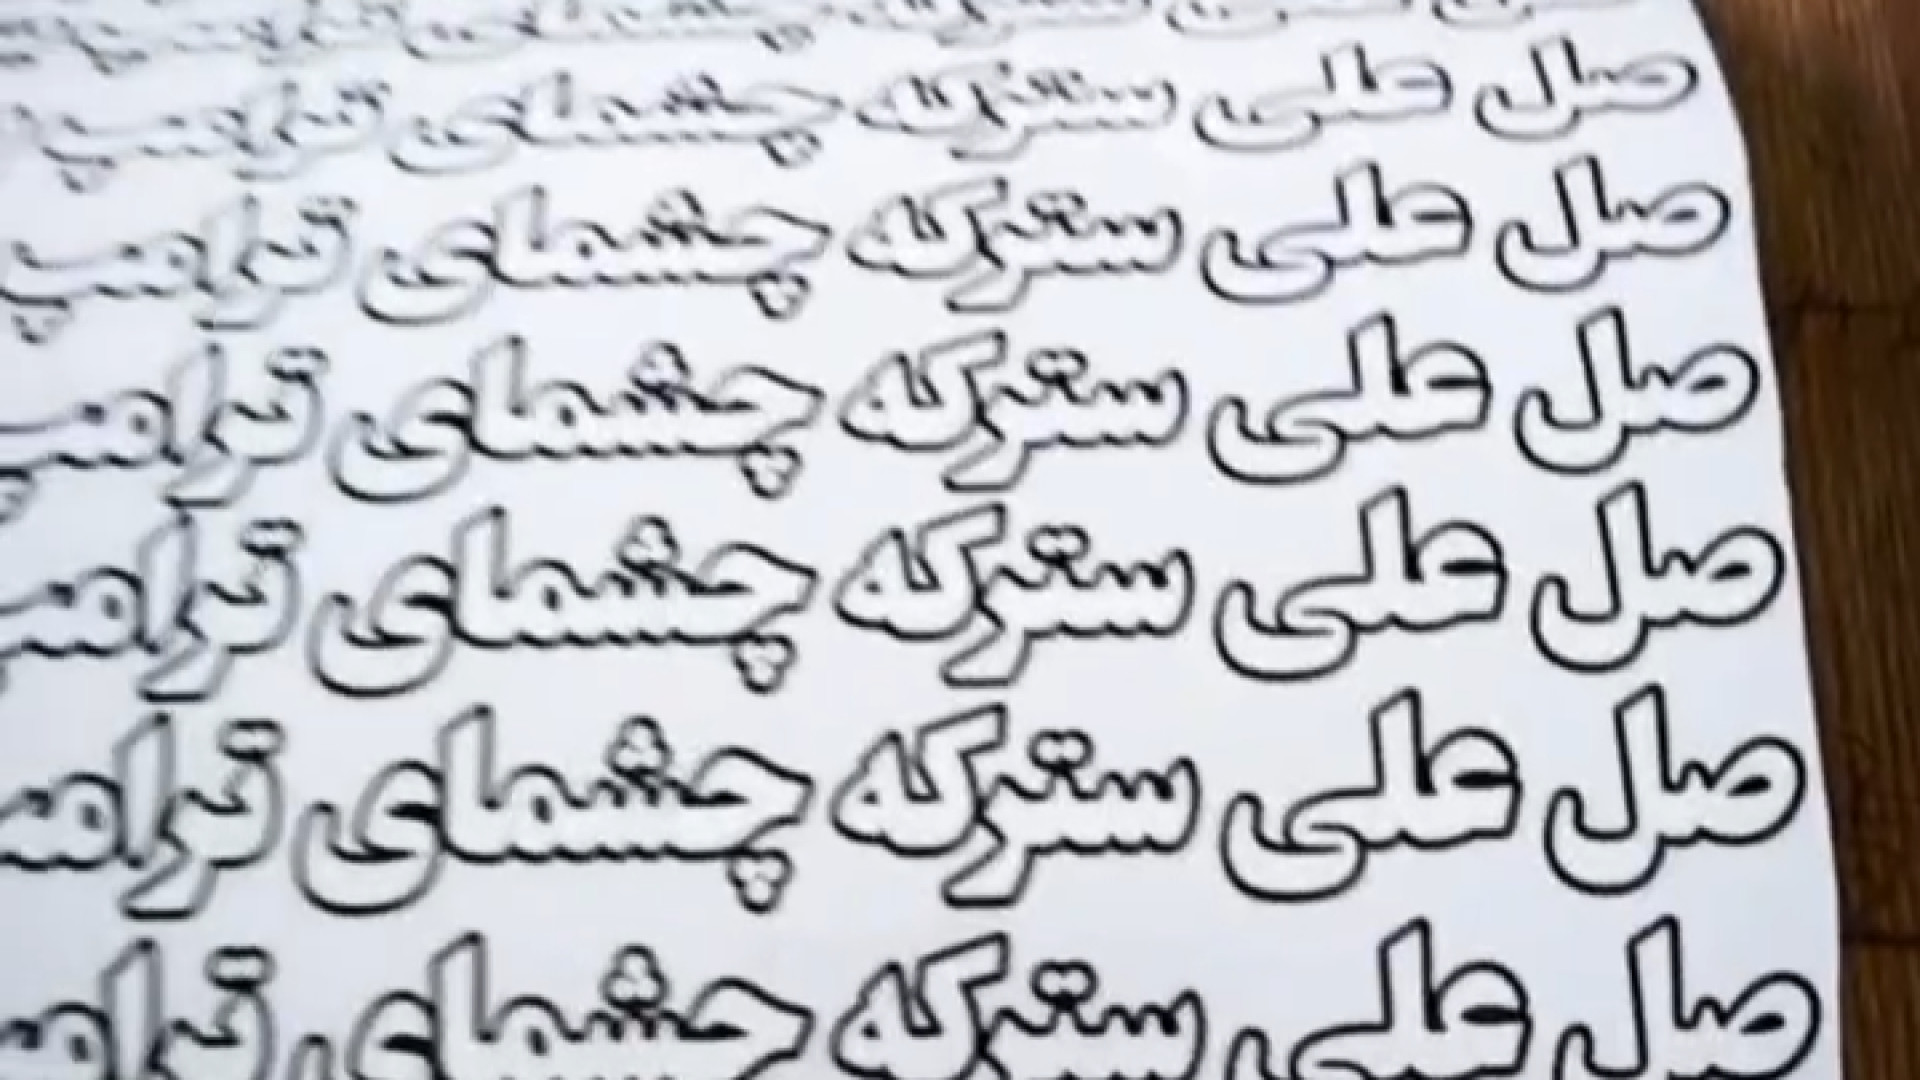 صل علی سترکه چشمای ترامپ
صل علی سترکه چشمای ترامپ
صل علی سترکه چشمای ترامپ
صل علی سترکه چشمای
صل علی سترکه چشمای
صل علی سترکه چشمای